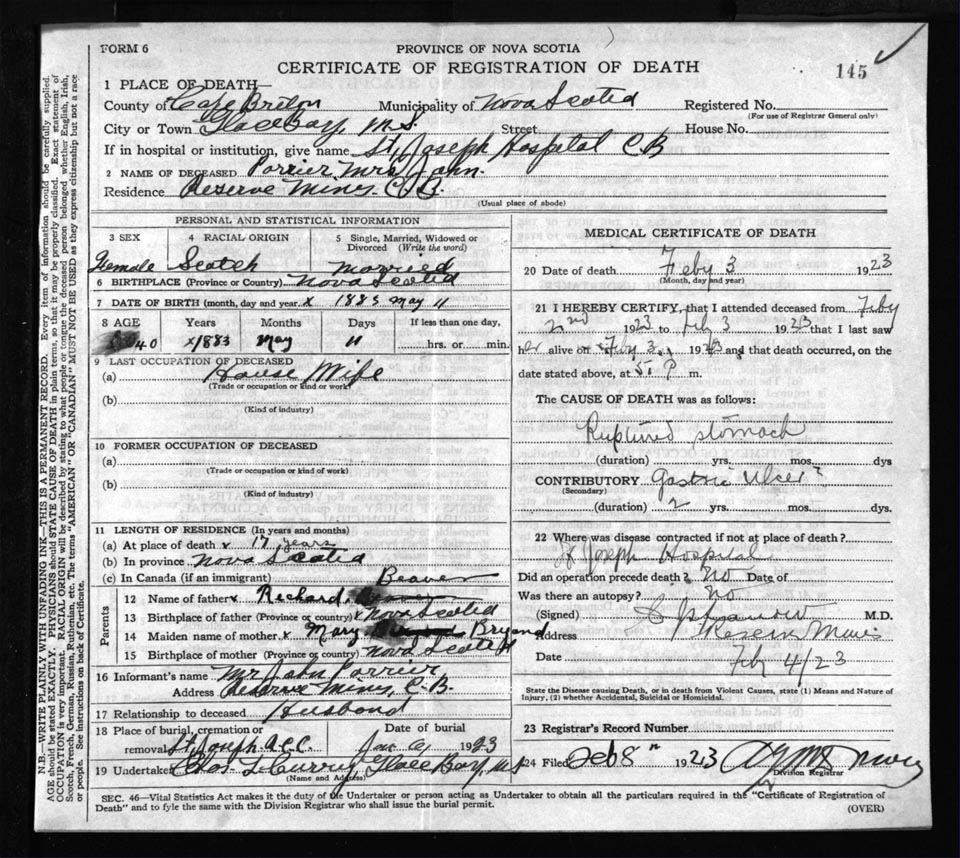 FORM 6
PROVINCE OF NOVA SCOTIA
CERTIFICATE OF REGISTRATION OF DEATH
145
1 PLACE OF DEATH—
County of Cape Breton Municipality of Nova Scotia Registered No.
(For use of Registrar General only)
City or Town Glace Bay, N.S. Street House No.
If in hospital or institution, give name St. Joseph Hospital C.B
2 NAME OF DECEASED Porrier Mrs John.
Residence Reserve Mines, C.B.
(Usual place of abode)
PERSONAL AND STATISTICAL INFORMATION
3 SEX 4 RACIAL ORIGIN 5 Single, Married, Widowed or Divorced (Write the word)
Female Scotch Married
6 BIRTHPLACE (Province or Country) Nova Scotia
7 DATE OF BIRTH (month, day and year) x 1883 May 11
8 AGE Years Months Days If less than one day,
40 x1883 May 11 hrs. or min.
9 LAST OCCUPATION OF DECEASED
(a) House Wife
(Trade or occupation or kind of work)
(b)
(Kind of industry)
10 FORMER OCCUPATION OF DECEASED
(a)
(Trade or occupation or kind of work)
(b)
(Kind of industry)
11 LENGTH OF RESIDENCE (In years and months)
(a) At place of death x 17 years
(b) In province Nova Scotia
(c) In Canada (if an immigrant)
Parents
12 Name of father x Richard, Beaver
13 Birthplace of father (Province or country) x Nova Scotia
14 Maiden name of mother x Mary Bryand
15 Birthplace of mother (Province or country) Nova Scotia
16 Informant's name Mr John Porrier
Address Reserve Mines, C.B.
17 Relationship to deceased Husband
18 Place of burial, cremation or removal St. Joseph Date of burial 1923
19 Undertaker Chas L Curry, Glace Bay, N.S
(Name and Address)
MEDICAL CERTIFICATE OF DEATH
20 Date of death Feby 3 1923
(Month, day and year)
21 I HEREBY CERTIFY, that I attended deceased from Feby
2nd 1923 to Feb 3 1923 that I last saw
her alive on Feby 3 1923 and that death occurred, on the
date stated above, at 5. P m.
The CAUSE OF DEATH was as follows:
Ruptured stomach
(duration) yrs. mos. dys
CONTRIBUTORY Gastric Ulcer?
(Secondary)
(duration) 2 yrs. mos. dys.
22 Where was disease contracted if not at place of death?
St Joseph Hospital
Did an operation precede death? No Date of
Was there an autopsy? No
(Signed) M.D.
Address Reserve Mines
Date Feb 4/23
State the Disease causing Death, or in death from Violent Causes, state (1) Means and Nature of
Injury, (2) whether Accidental, Suicidal or Homicidal.
23 Registrar's Record Number
24 Filed Feb 8th 1923
Division Registrar
SEC. 46—Vital Statistics Act makes it the duty of the Undertaker or person acting as Undertaker to obtain all the particulars required in the "Certificate of Registration of
Death" and to fyle the same with the Division Registrar who shall issue the burial permit. (OVER)
N.B.—WRITE PLAINLY WITH UNFADING INK—THIS IS A PERMANENT RECORD. Every item of information should be carefully supplied.
AGE should be stated EXACTLY. PHYSICIANS should STATE CAUSE OF DEATH in plain terms, so that it may be properly classified. Exact statement of
OCCUPATION is very important. RACIAL ORIGIN will be described by stating to what people or tongue the deceased person belonged whether English, Irish,
Scotch, French, German, Russian, Ruthenian, etc. The terms "AMERICAN" OR "CANADIAN" MUST NOT BE USED as they express citizenship but not a race
or people. See instructions on back of Certificate.